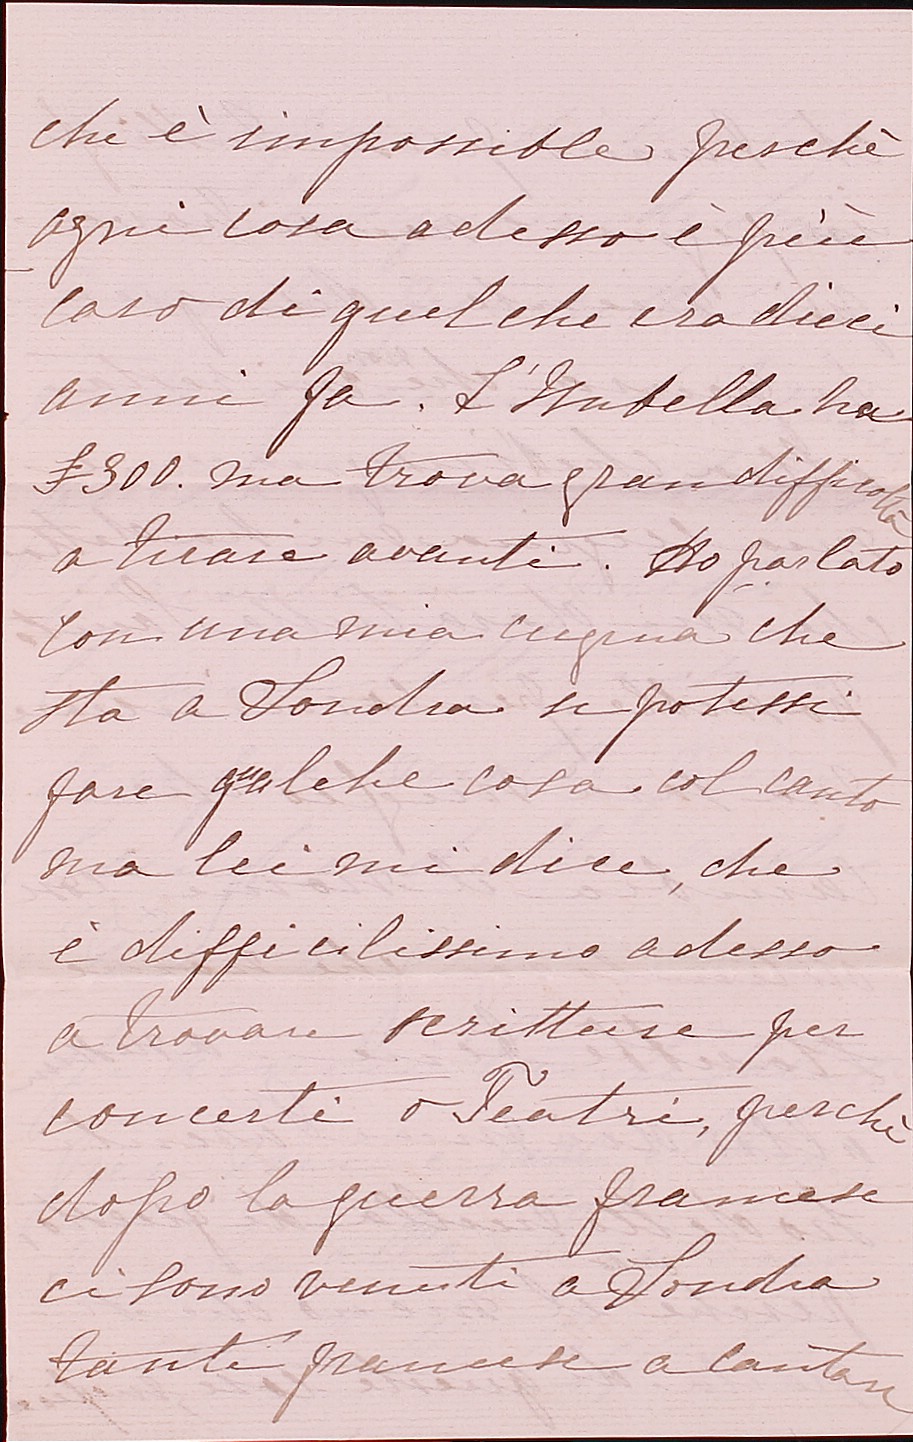 che è impossible perchè
ogni cosa adesso è più
caro di quel che era dieci
anni fa. L'Isabella ha
£300. ma trova gran difficoltà
a tirare avanti. Ho parlato
con una mia cugina che
sta a Londra se potessi
fare qualche cosa col canto
ma lei mi dice, che
è difficilissimo adesso
a trovare scritture per
concerti o Teatri, perchè
dopo la guerra francese
ci sono venuti a Londra
tanti francese a cantare